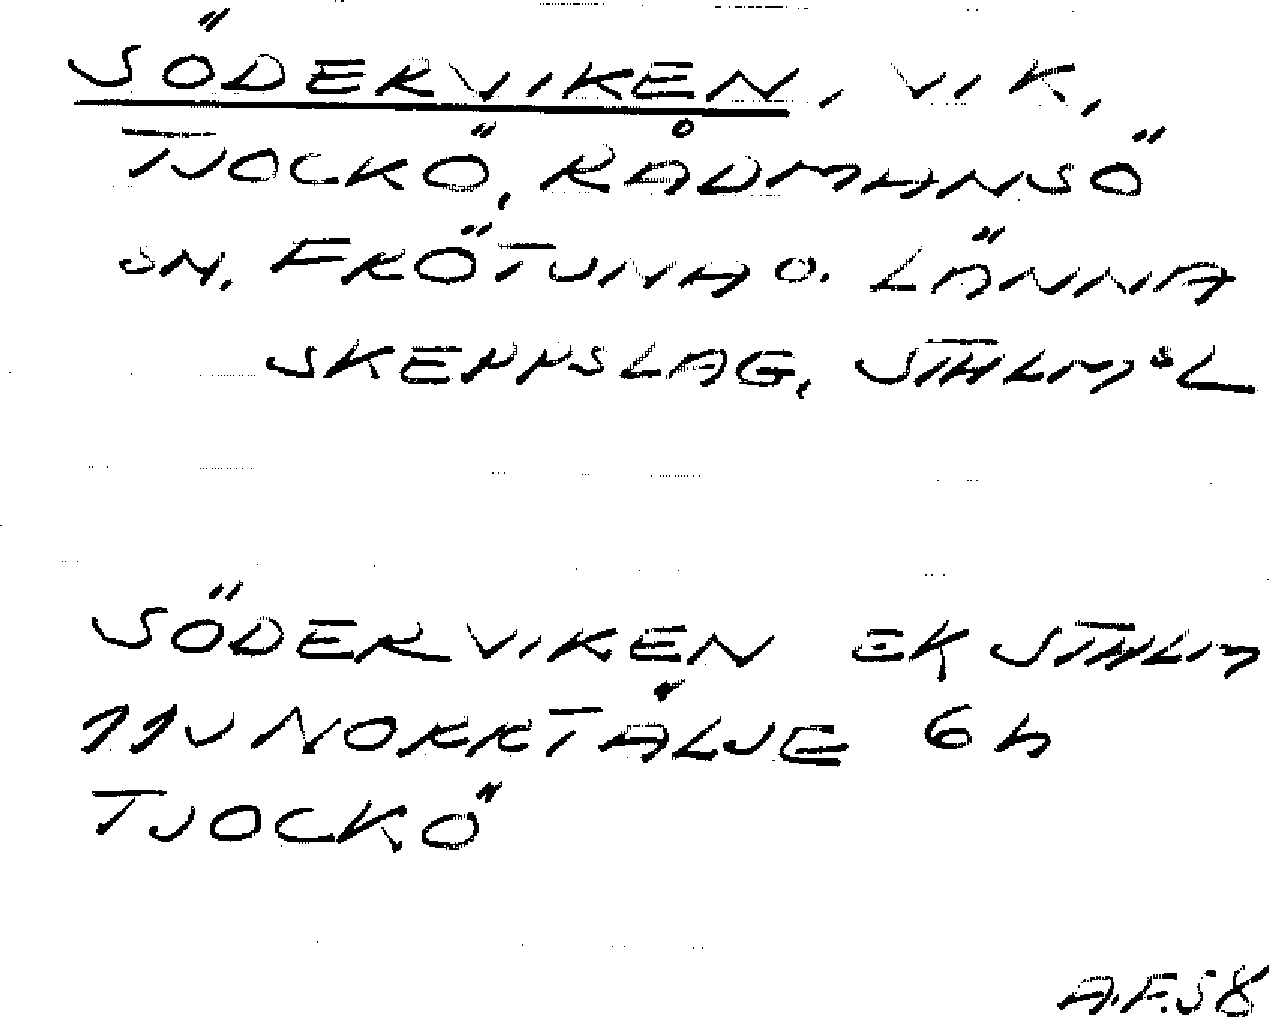 SÖDERVIKEN, VIK,
TJOCKÖ, RÅDMANSÖ
SN. FRÖTUNA O. LÄNNA
SKEPPSLAG, STHLMSL
SÖDERVIKEN EK STHLM
11J NORRTÄLJE 6h
TJOCKÖ
A.F.58